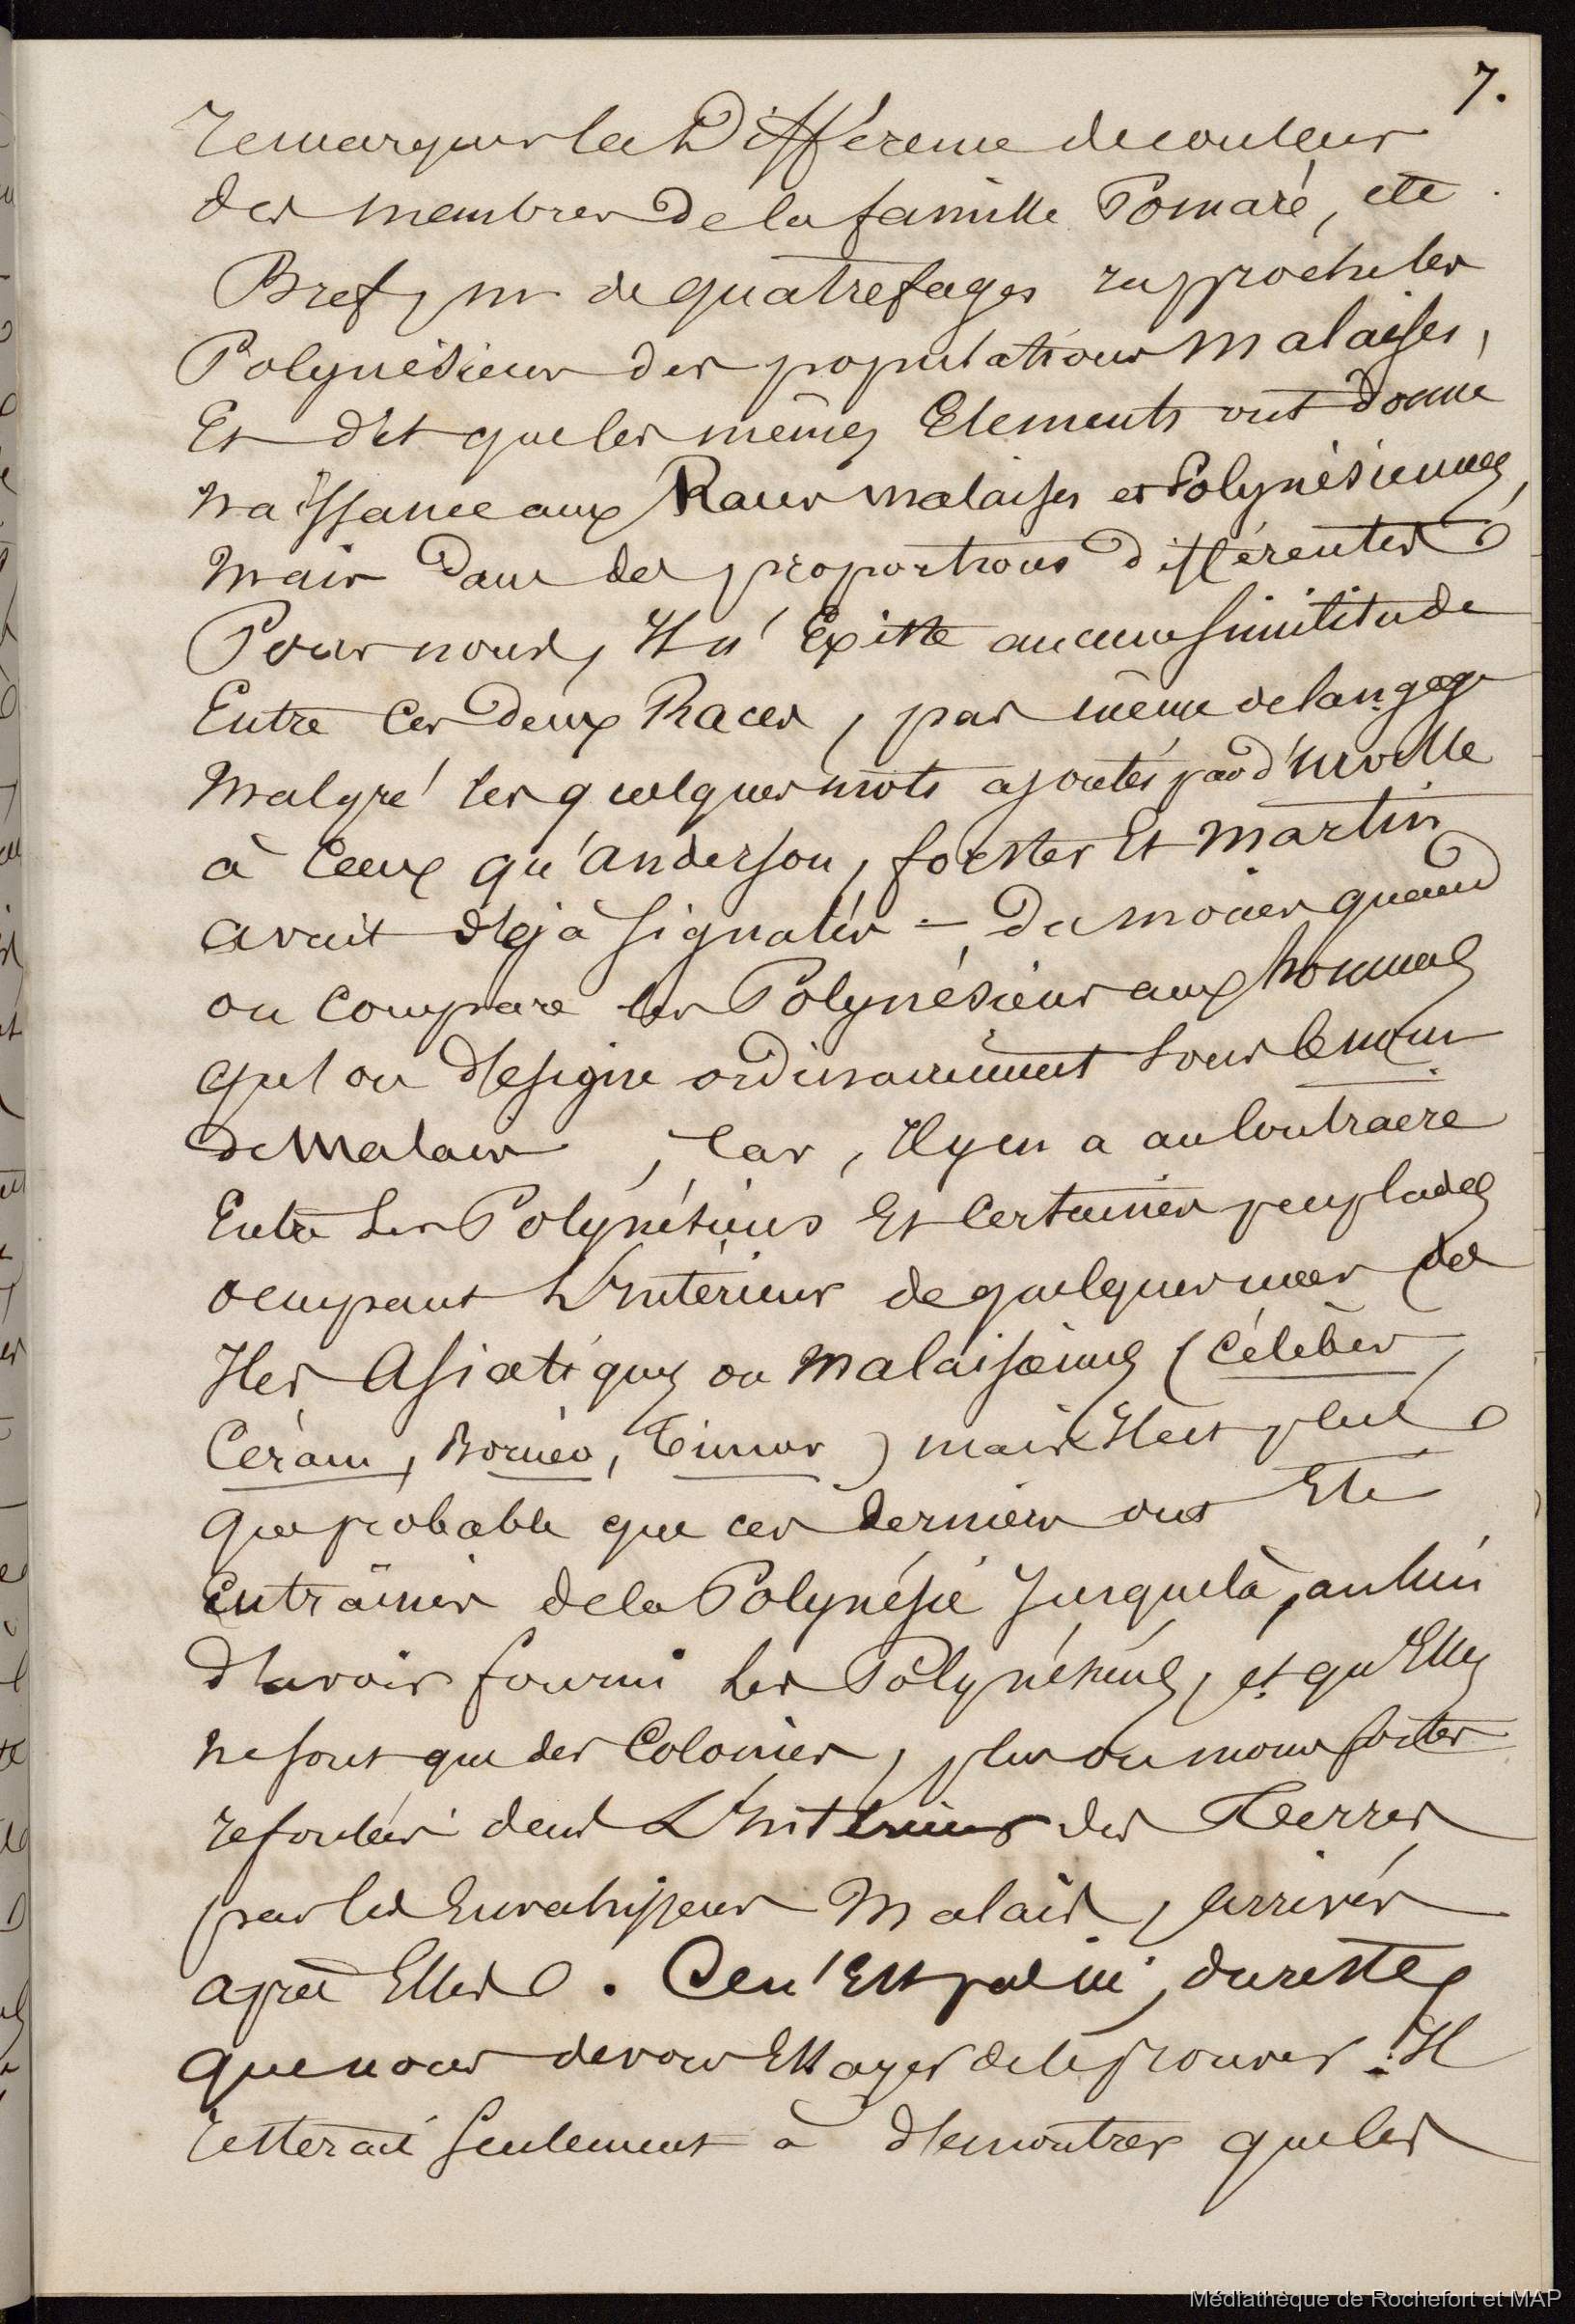 7.
remarquer la Différence de couleur
des membres De la famille Pomaré, etc.
Bref, mr de quatrefages rapproche les
Polynésiens des populations malaises,
Et dit que les mêmes Elements ont donné
naissance aux Races malaises et Polynésiennes,
mais Dans des proportions différentes
Pour nous, Il n'Existe aucune similitude
Entre Ces Deux Races, pas même de langage
malgré les quelques mots ajoutés par d'urville
à Ceux qu'anderson, forster Et martin
avait déjà signalés - Du moins quand
on Compare les Polynésiens aux hommes
que l'on désigne ordinairement sous le nom
de Malais, Car, Il y en a au Contraire
Entre Les Polynésiens Et Certaines peuplades
occupant L'Intérieur de quelques unes des
Iles Asiatiques ou Malaisiennes (Célèbes,
Céram, Bornéo, Timor) mais Il est plus
que probable que ces derniers ont Eté
Entraînés de la Polynésie Jusque là, au lieu
d'avoir fourni Les Polynésiens, et qu'Elles
ne sont que des Colonies, plus ou moins fortes
refoulées dans L'Intérieur des Terres
par les Envahisseurs Malais, arrivés
après Elles. Ce n'Est pas ici, du reste,
que nous devons Essayer de le prouver. Il
resterait seulement à démontrer que les
Médiathèque de Rochefort et MAP